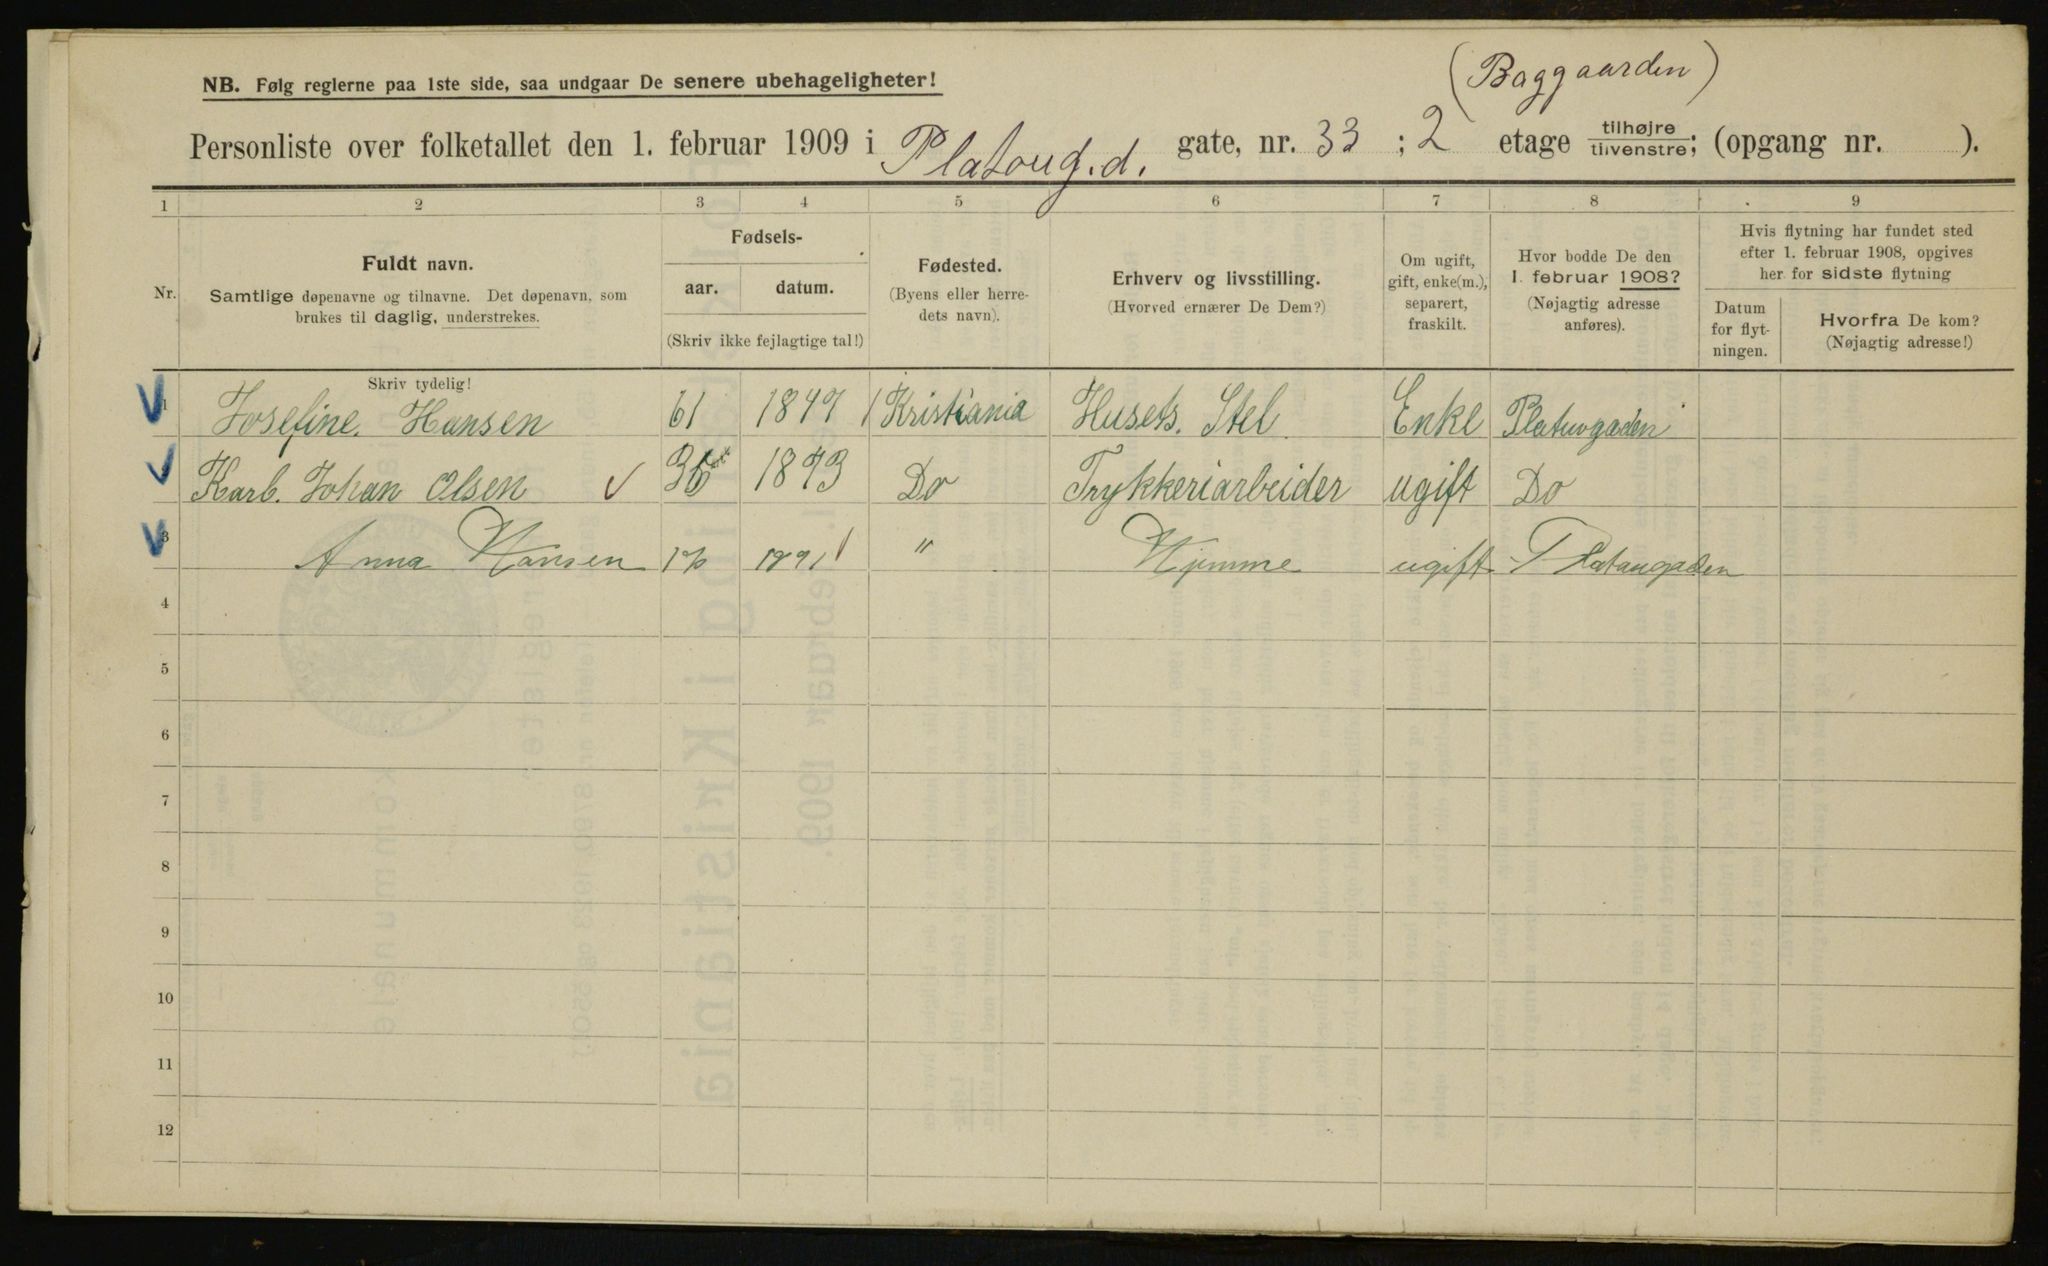 (Baggaarden)
NB. Følg reglerne paa 1ste side, saa undgaar De senere ubehageligheter!
Personliste over folketallet den 1. februar 1909 i Platoug.d. gate, nr. 33 ; 2 etage tilhøjre tilvenstre; (opgang nr. ).
1 2 3 4 5 6 7 8 9
Nr.
Fuldt navn.
Samtlige døpenavne og tilnavne. Det døpenavn, som
brukes til daglig, understrekes.
Fødsels-
aar. datum.
(Skriv ikke fejlagtige tal!)
Fødested.
(Byens eller herre-
dets navn).
Erhverv og livsstilling.
(Hvorved ernærer De Dem?)
Om ugift,
gift, enke(m.),
separert,
fraskilt.
Hvor bodde De den
1. februar 1908?
(Nøjagtig adresse
anføres).
Hvis flytning har fundet sted
efter 1. februar 1908, opgives
her for sidste flytning
Datum
for flyt-
ningen.
Hvorfra De kom?
(Nøjagtig adresse!)
Skriv tydelig!
1 Josefine. Hansen 61 1847 Kristiania Husets. Stel Enke Platuvgaden
2 Karl. Johan Olsen 36 1873 Do Trykkeriarbeider ugift Do
3 Anna Hansen 1891 " Hjemme ugift Plataugaden
4
5
6
7
8
9
10
11
12